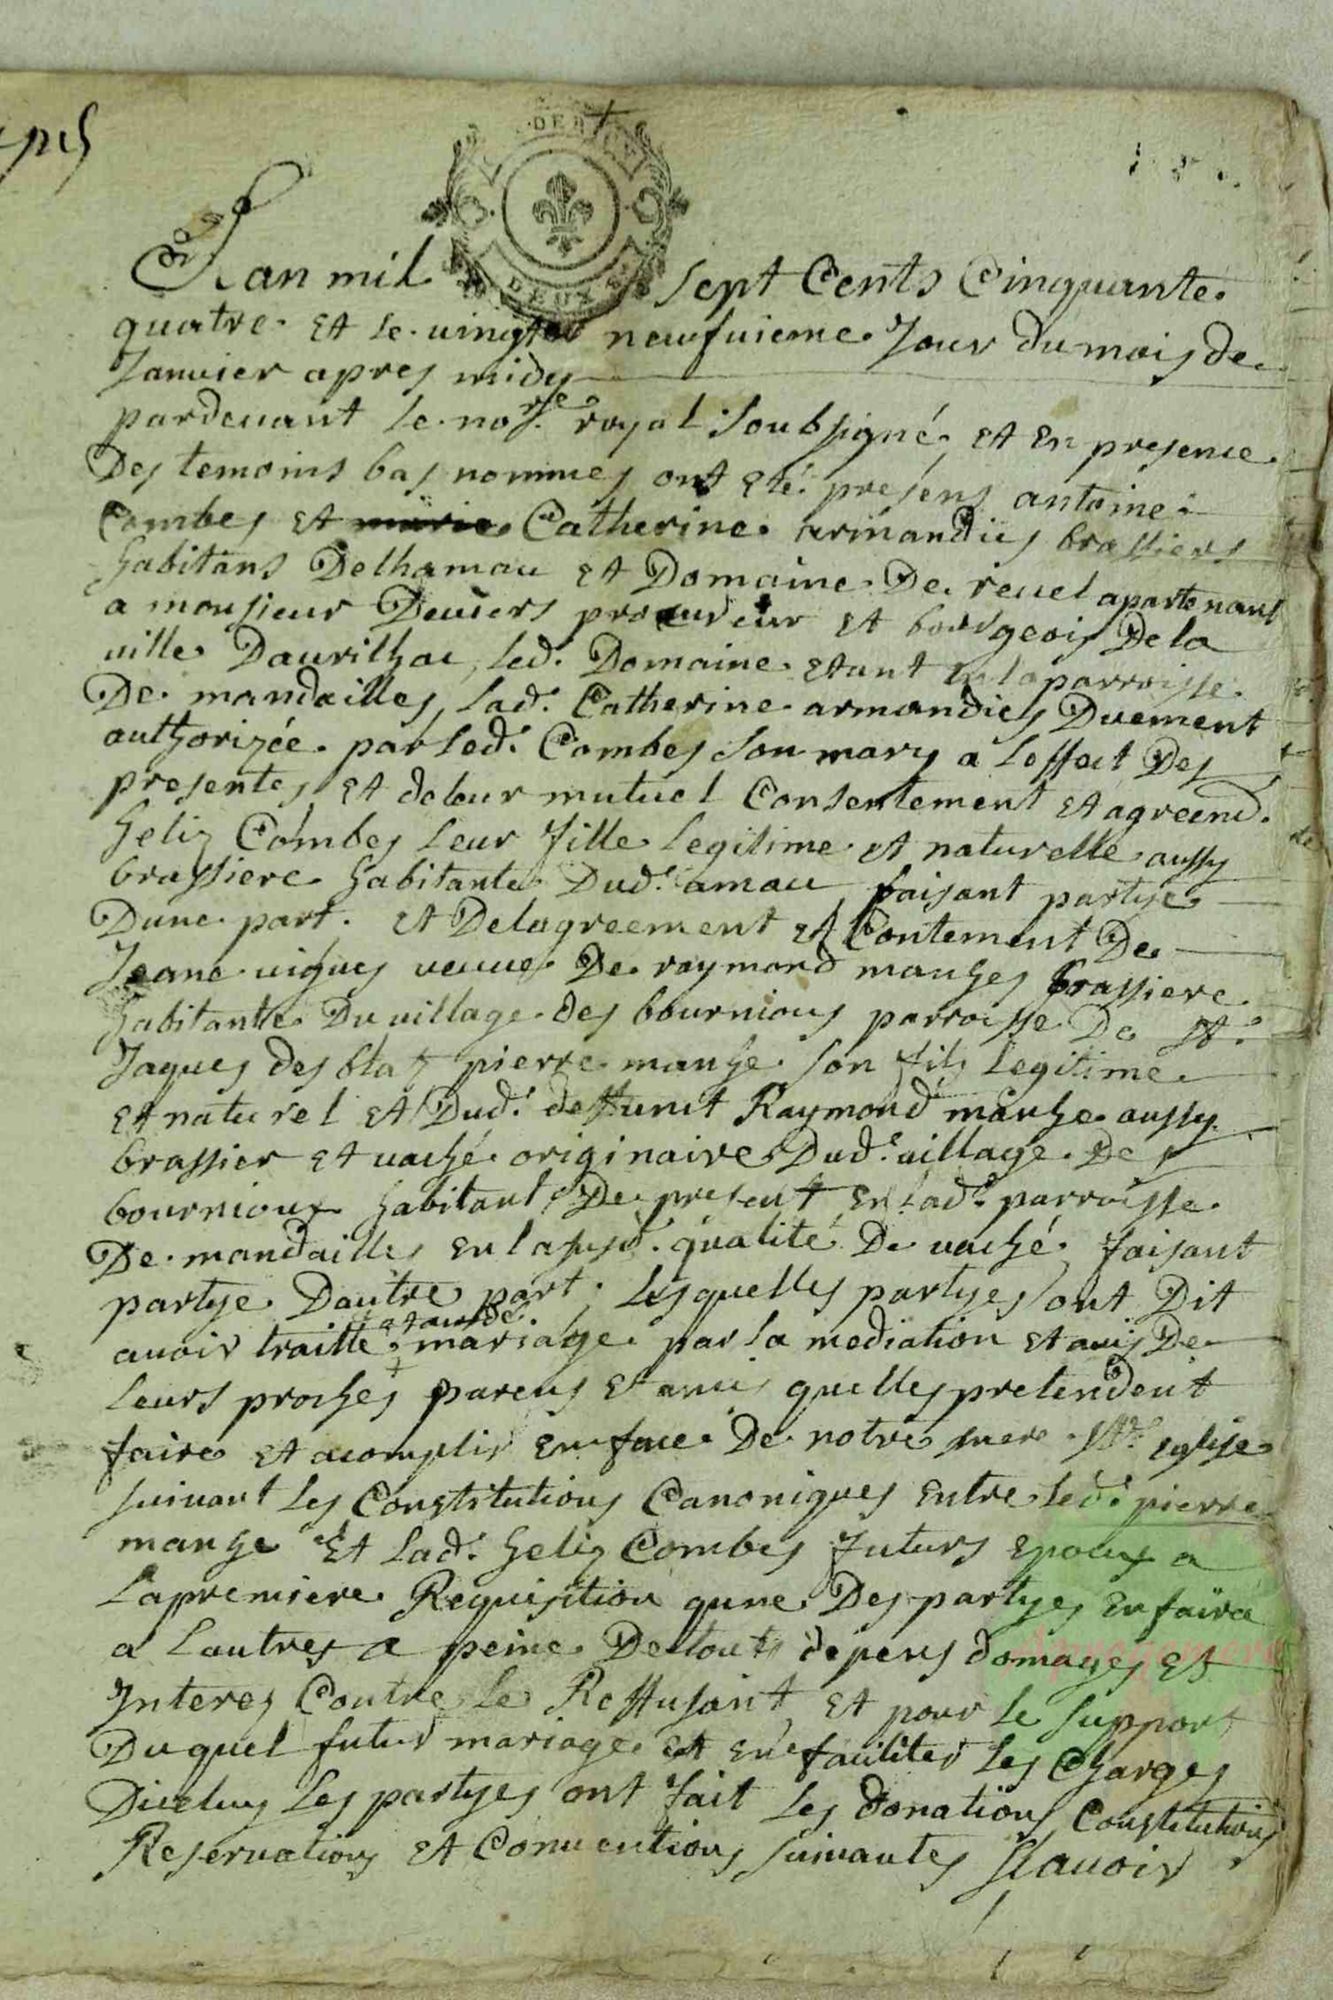 DEUX S
Lan mil sept Cents Cinquante
quatre et le vingt neufvieme Jour du mois de
Janvier apres midy
pardevant le nore. royal Soubsigné, et En presence
Des temoins bas nommes ont eté présens antoine
Combes et marie Catherine armandies brassiers
habitans Delhamau et Domaine De revel apartenant
a monsieur Deviers procureur et bourgeois De la
ville Daurilhac, led. Domaine etant En la parroisse
De mandailles, lad. Catherine armandies Duement
authorizée par led. Combes Son mary a l'effect Des
presentes, et de leur mutuel Consentement et agreemt.
helis Combes leur fille legitime et naturelle aussy
brassiere habitante Dud. amau faisant partye
Dune part. et De lagreement et Contement De
Jeane vignes veuve De raymond manhes brassiere
habitante Du village des bournious parroisse De St.
Jaques des blaz pierre manhe son fils legitime
et naturel et Dud. deffunct Raymond manhe aussy
brassier et vaché originaire Dud. village De
bournioux habitant De present En lad. parroisse
De mandailles en la susd. qualité De vaché, faisant
partye Dautre part, lesquelles partyes ont Dit
avoir traitté et acordé mariage par la mediation et avis De
leurs proches parens et amis quelles pretendent
faire et acomplir en face De notre mere Ste. Eglise
suivant les Constitutions Canoniques entre led. pierre
manhe et lad. helis Combes futurs epoux a
la premiere Requisition qune Des partyes en faira
a lautre a peine De touts depens domages et
Interez Contre le Reffusant, et pour le support
Du quel futur mariage et en faciliter les Charges
Diceluy les partyes ont fait les donations Constitutions
Reservations et Conventions suivantes sçavoir